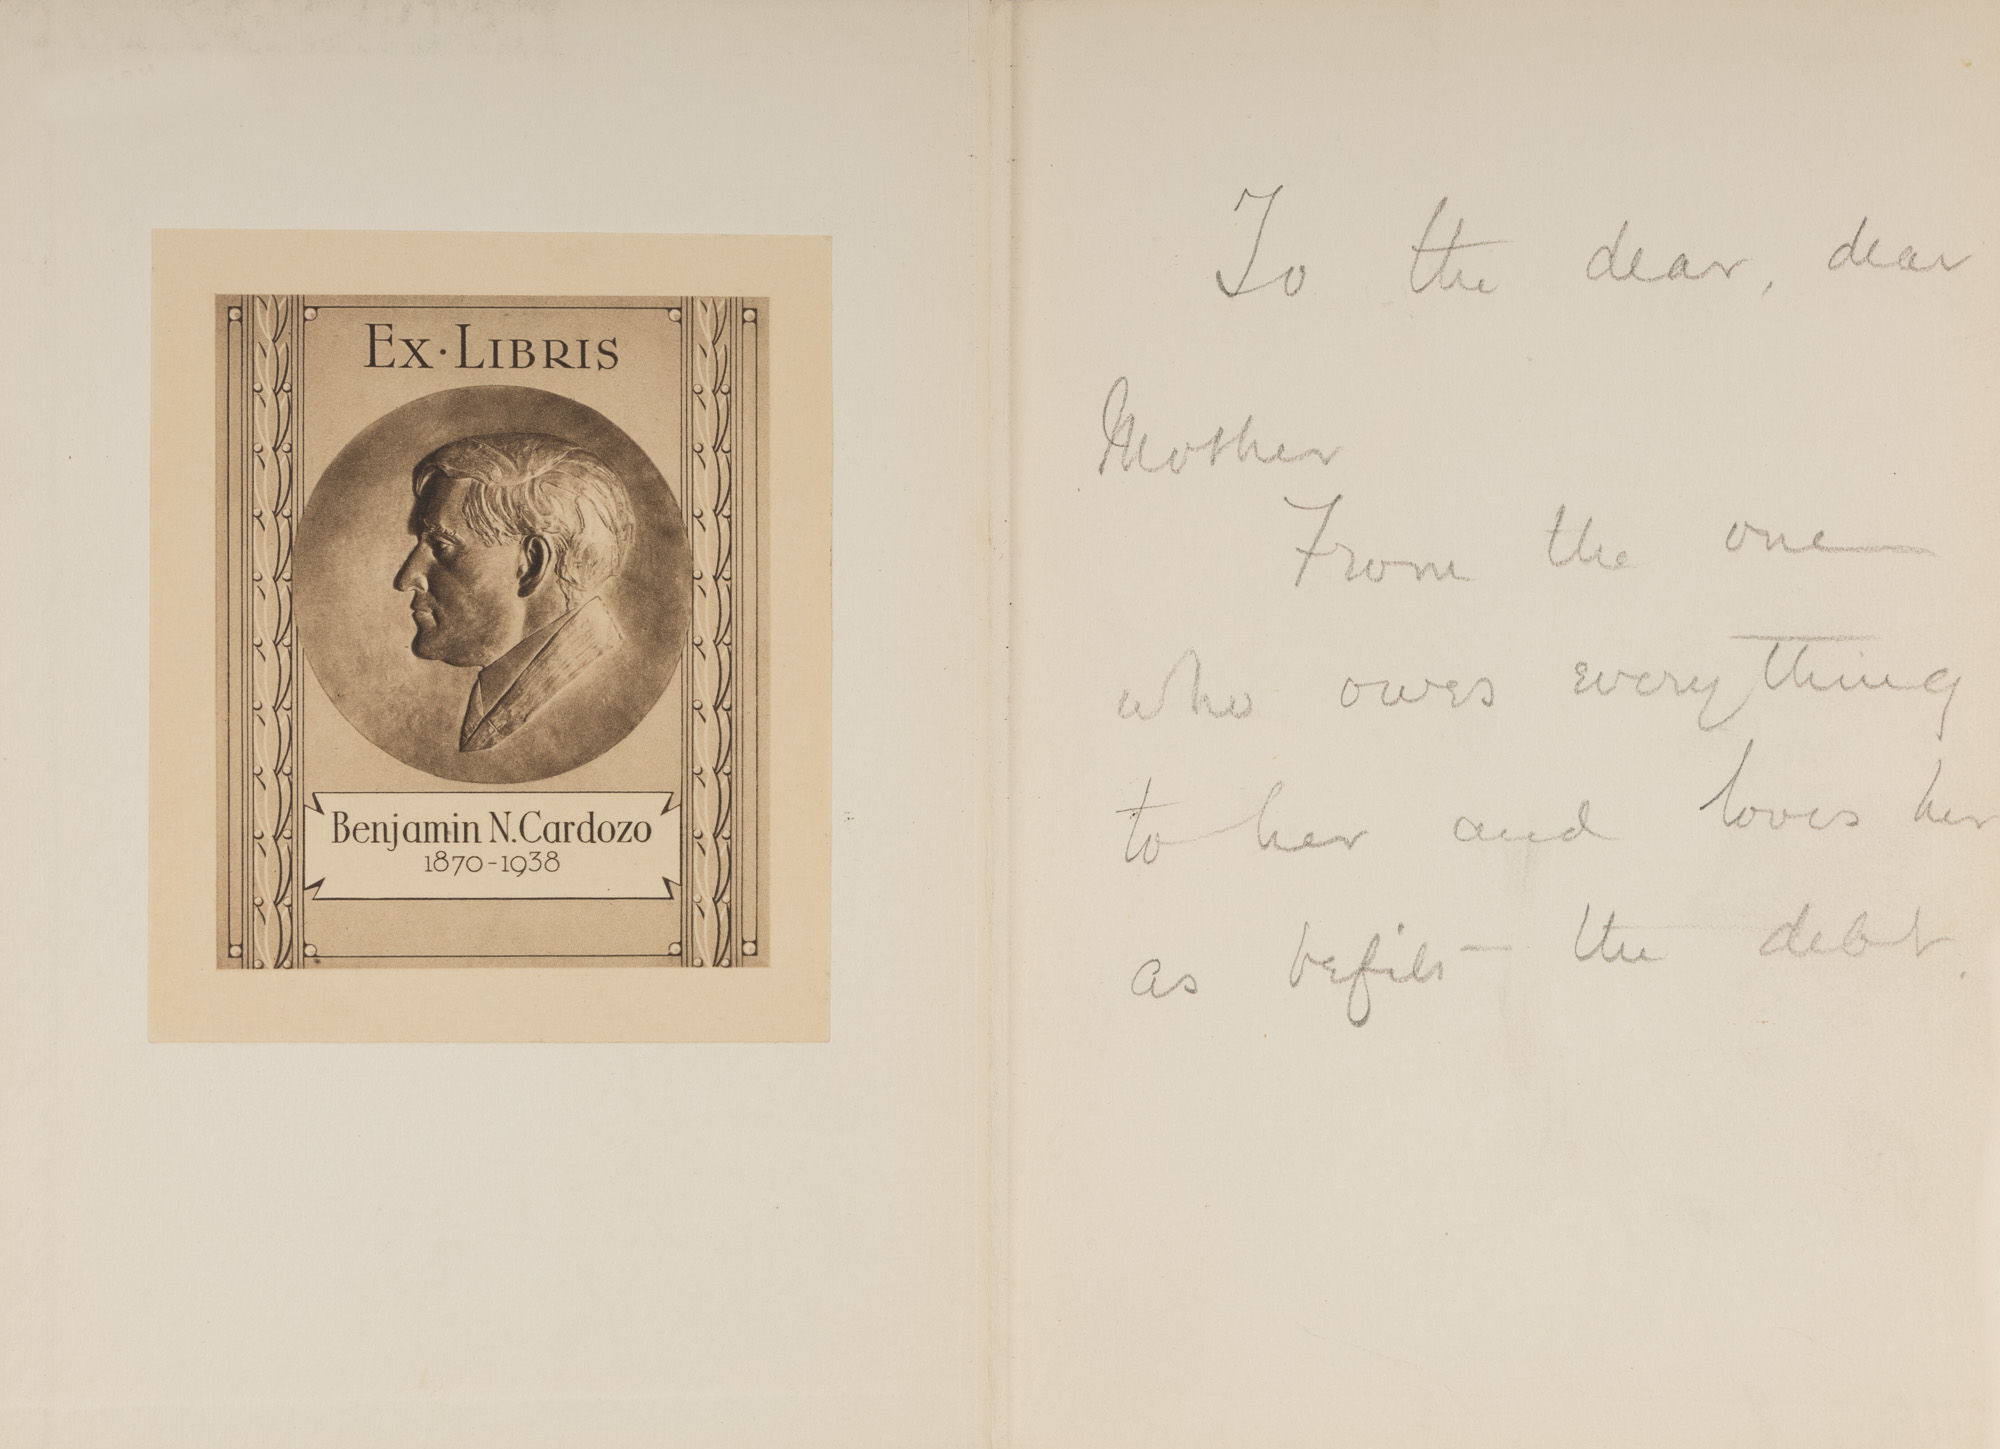 Ex·Libris
Benjamin N. Cardozo
1870-1938
To the dear, dear
Mother
From the one
who owes everything
to her and loves her
as befits the debt.